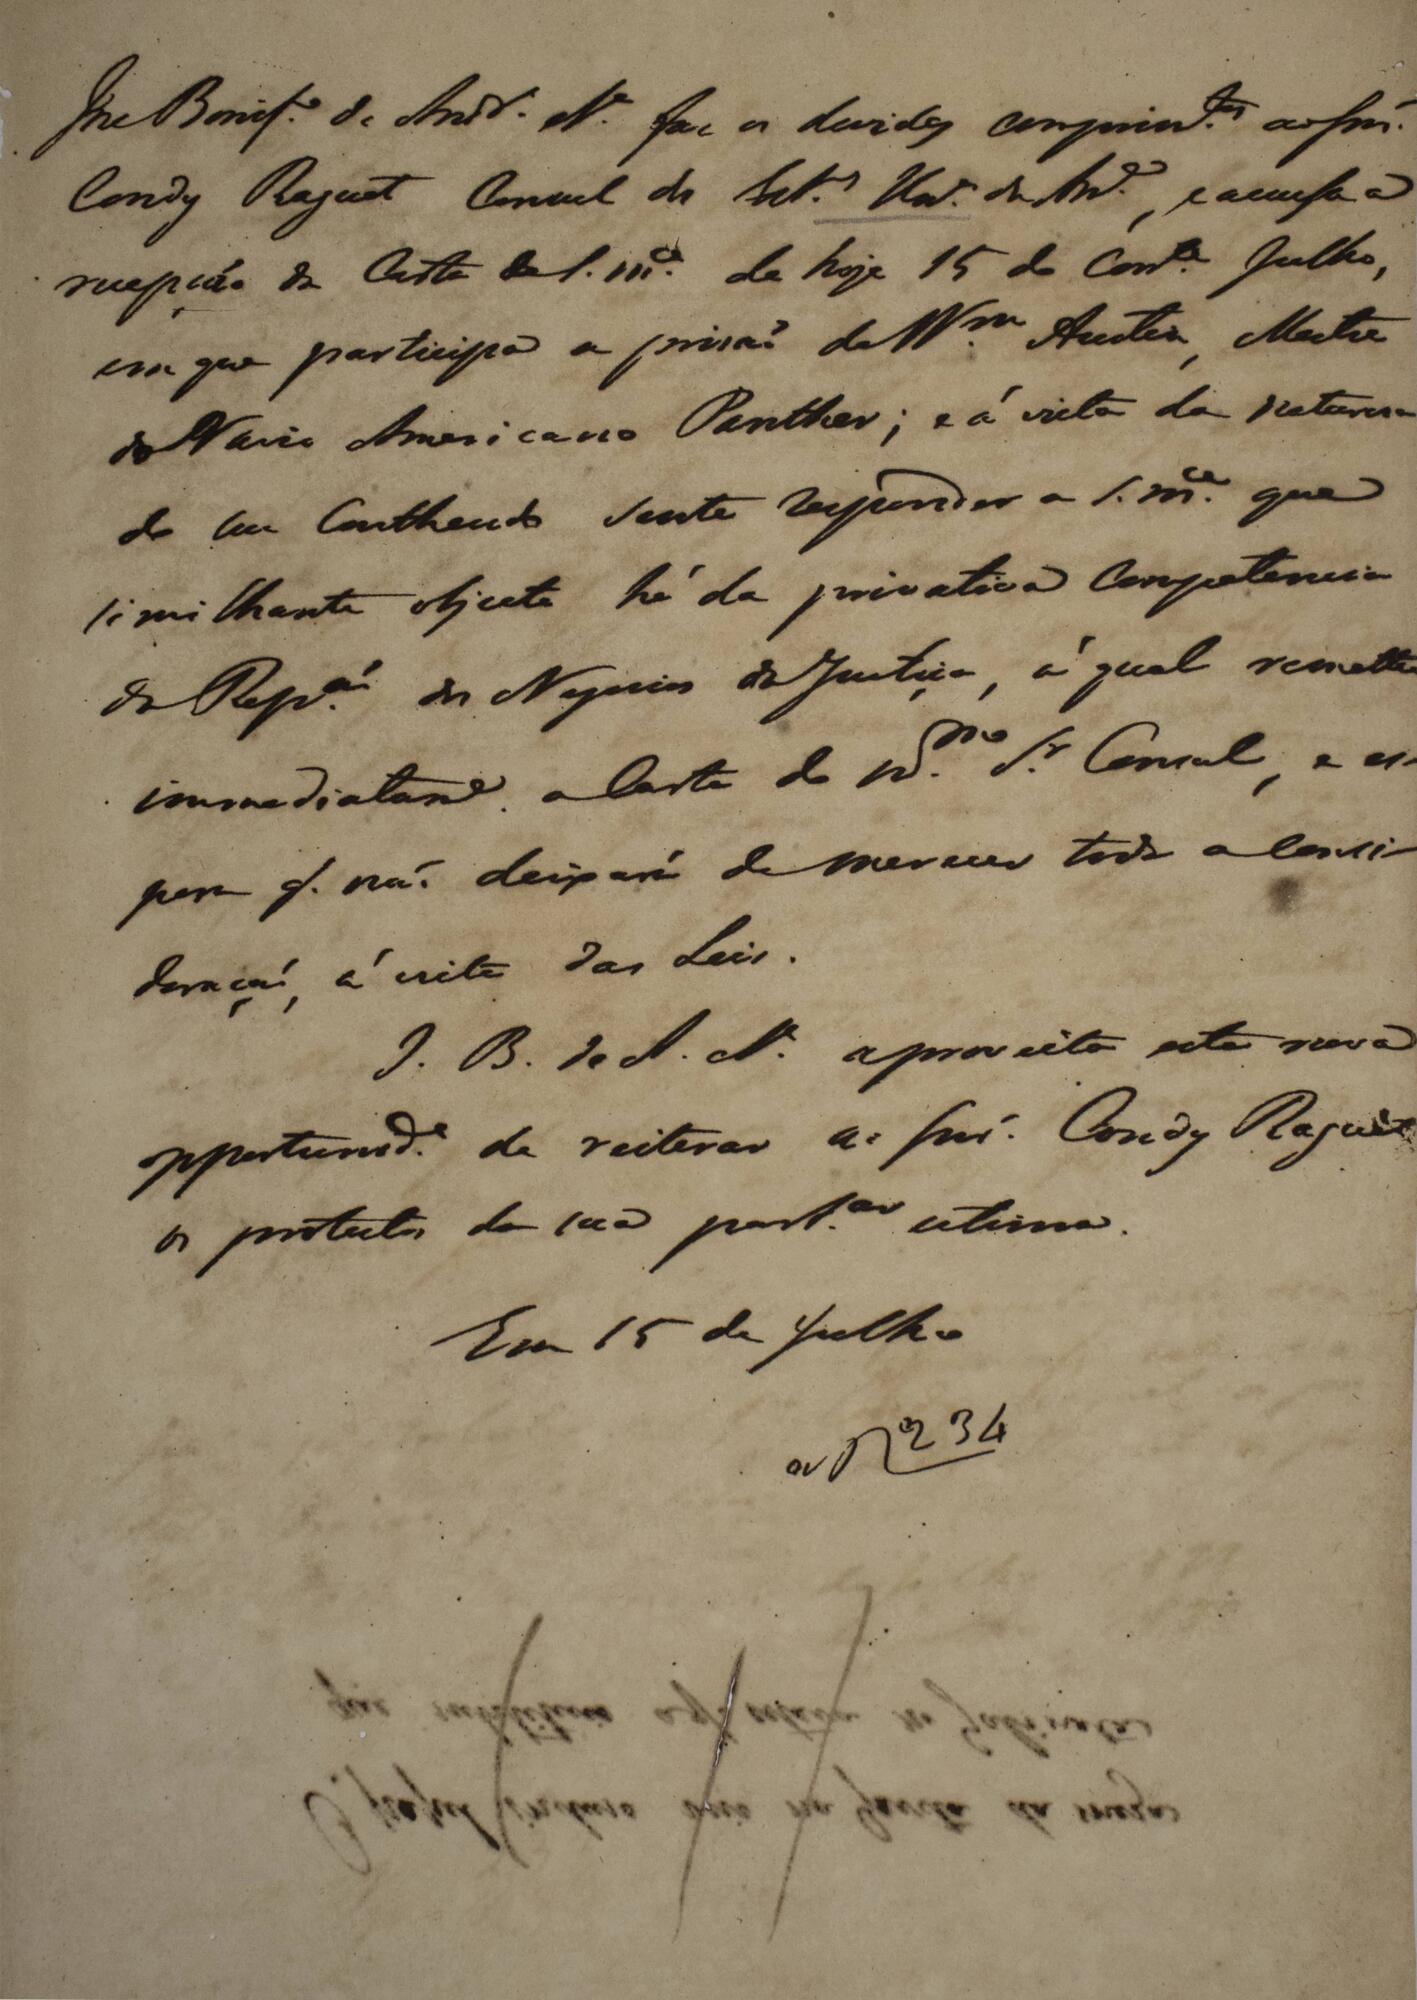 Jose Bonif.º de Andr.ª N.ª faz os devidos comprim.tos ao Snr.
Condy Raguet Consul dos Est.s Un.s da Am.ª, e accusa a
recepção da Carta de S. m.ce de hoje 15 do Corr.te Julho,
em que participa a prisaõ de W.m Austin, Mestre
do Navio Americano Panther; e á vista da naturesa
do seu Contheudo sente responder a S. m.ce que
similhante objecto hé da privativa Competencia
da Rep.am dos Negocios da Justiça, á qual remette
immediatam.e a Carta do m.mo S.r Consul, e es-
pera q. naõ deixará de merecer toda a Consi-
deraçaõ, á vista das Leis.
J. B. de A. N.ª aproveita esta nova
opportunid.e de reiterar ao Snr. Condy Raguet
os protestos da sua part.ar estima.
Em 15 de Julho
N 234
O papel incluso veio na Pasta da meza
que substituia a q̃ estava no Gabinete